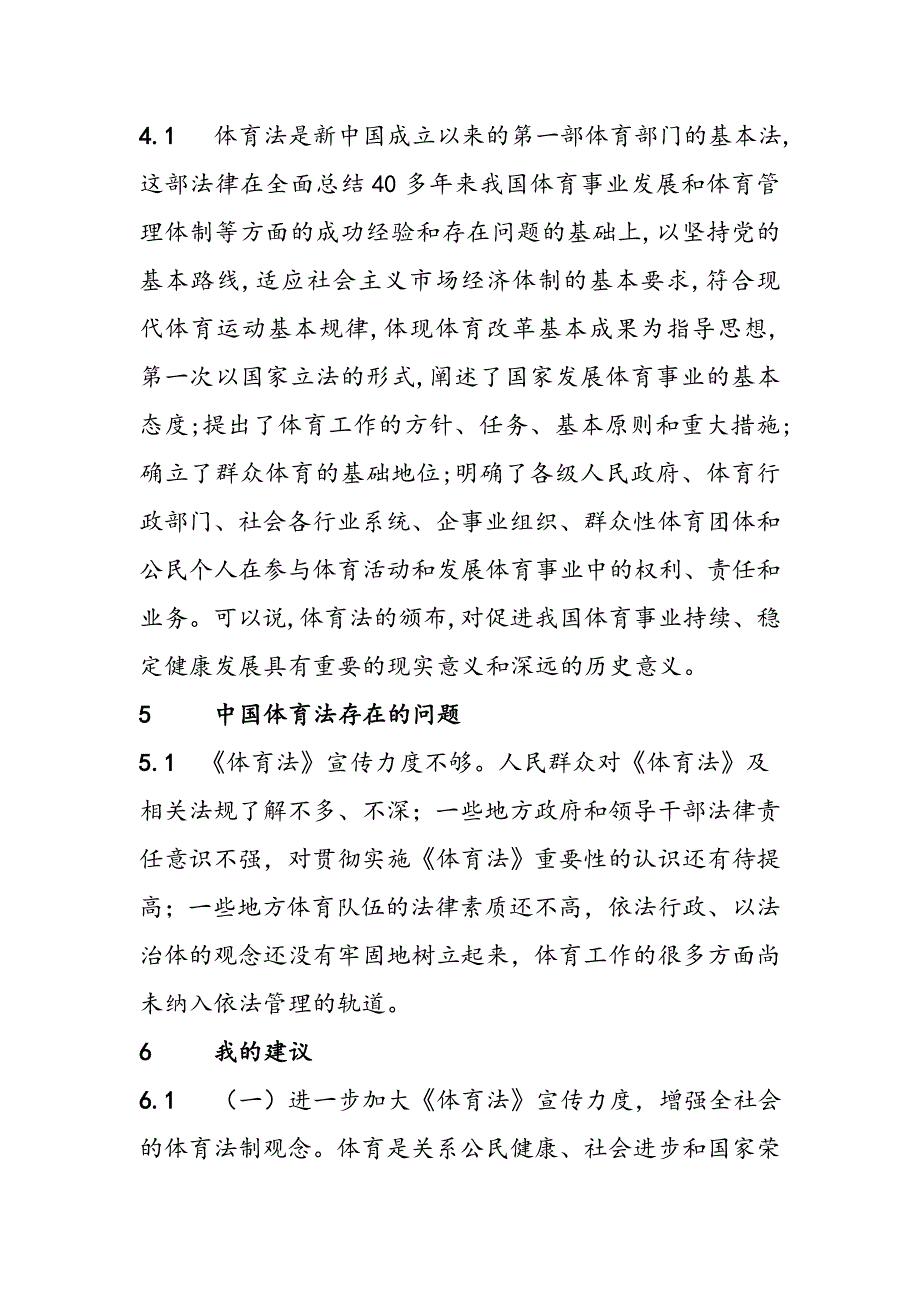 4.1 体育法是新中国成立以来的第一部体育部门的基本法,
这部法律在全面总结40多年来我国体育事业发展和体育管
理体制等方面的成功经验和存在问题的基础上,以坚持党的
基本路线,适应社会主义市场经济体制的基本要求,符合现
代体育运动基本规律,体现体育改革基本成果为指导思想,
第一次以国家立法的形式,阐述了国家发展体育事业的基本
态度;提出了体育工作的方针、任务、基本原则和重大措施;
确立了群众体育的基础地位;明确了各级人民政府、体育行
政部门、社会各行业系统、企事业组织、群众性体育团体和
公民个人在参与体育活动和发展体育事业中的权利、责任和
业务。可以说,体育法的颁布,对促进我国体育事业持续、稳
定健康发展具有重要的现实意义和深远的历史意义。
5 中国体育法存在的问题
5.1 《体育法》宣传力度不够。人民群众对《体育法》及
相关法规了解不多、不深；一些地方政府和领导干部法律责
任意识不强，对贯彻实施《体育法》重要性的认识还有待提
高；一些地方体育队伍的法律素质还不高，依法行政、以法
治体的观念还没有牢固地树立起来，体育工作的很多方面尚
未纳入依法管理的轨道。
6 我的建议
6.1 （一）进一步加大《体育法》宣传力度，增强全社会
的体育法制观念。体育是关系公民健康、社会进步和国家荣